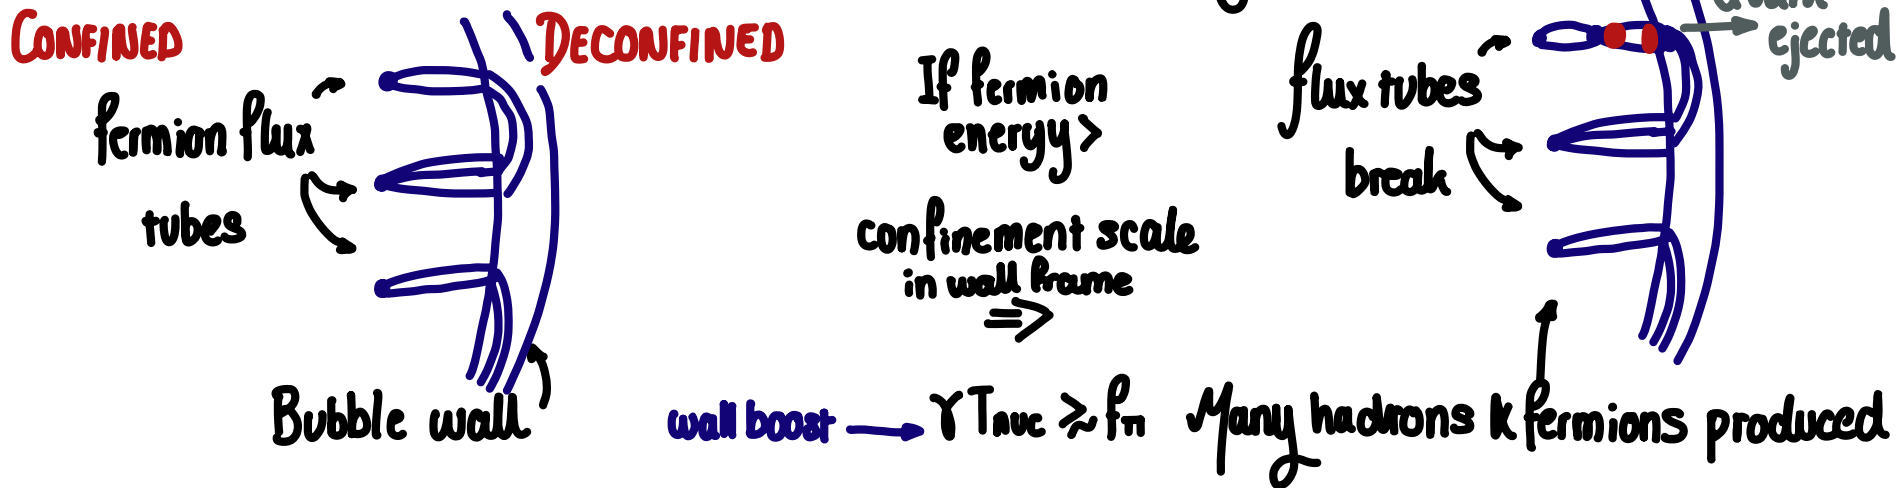 CONFINED
DECONFINED
fermion flux
tubes
Bubble wall
If fermion
energy >
confinement scale
in wall frame
⇒
wall boost → γ T_nuc ≳ f_π
flux tubes
break
ejected
Many hadrons & fermions produced